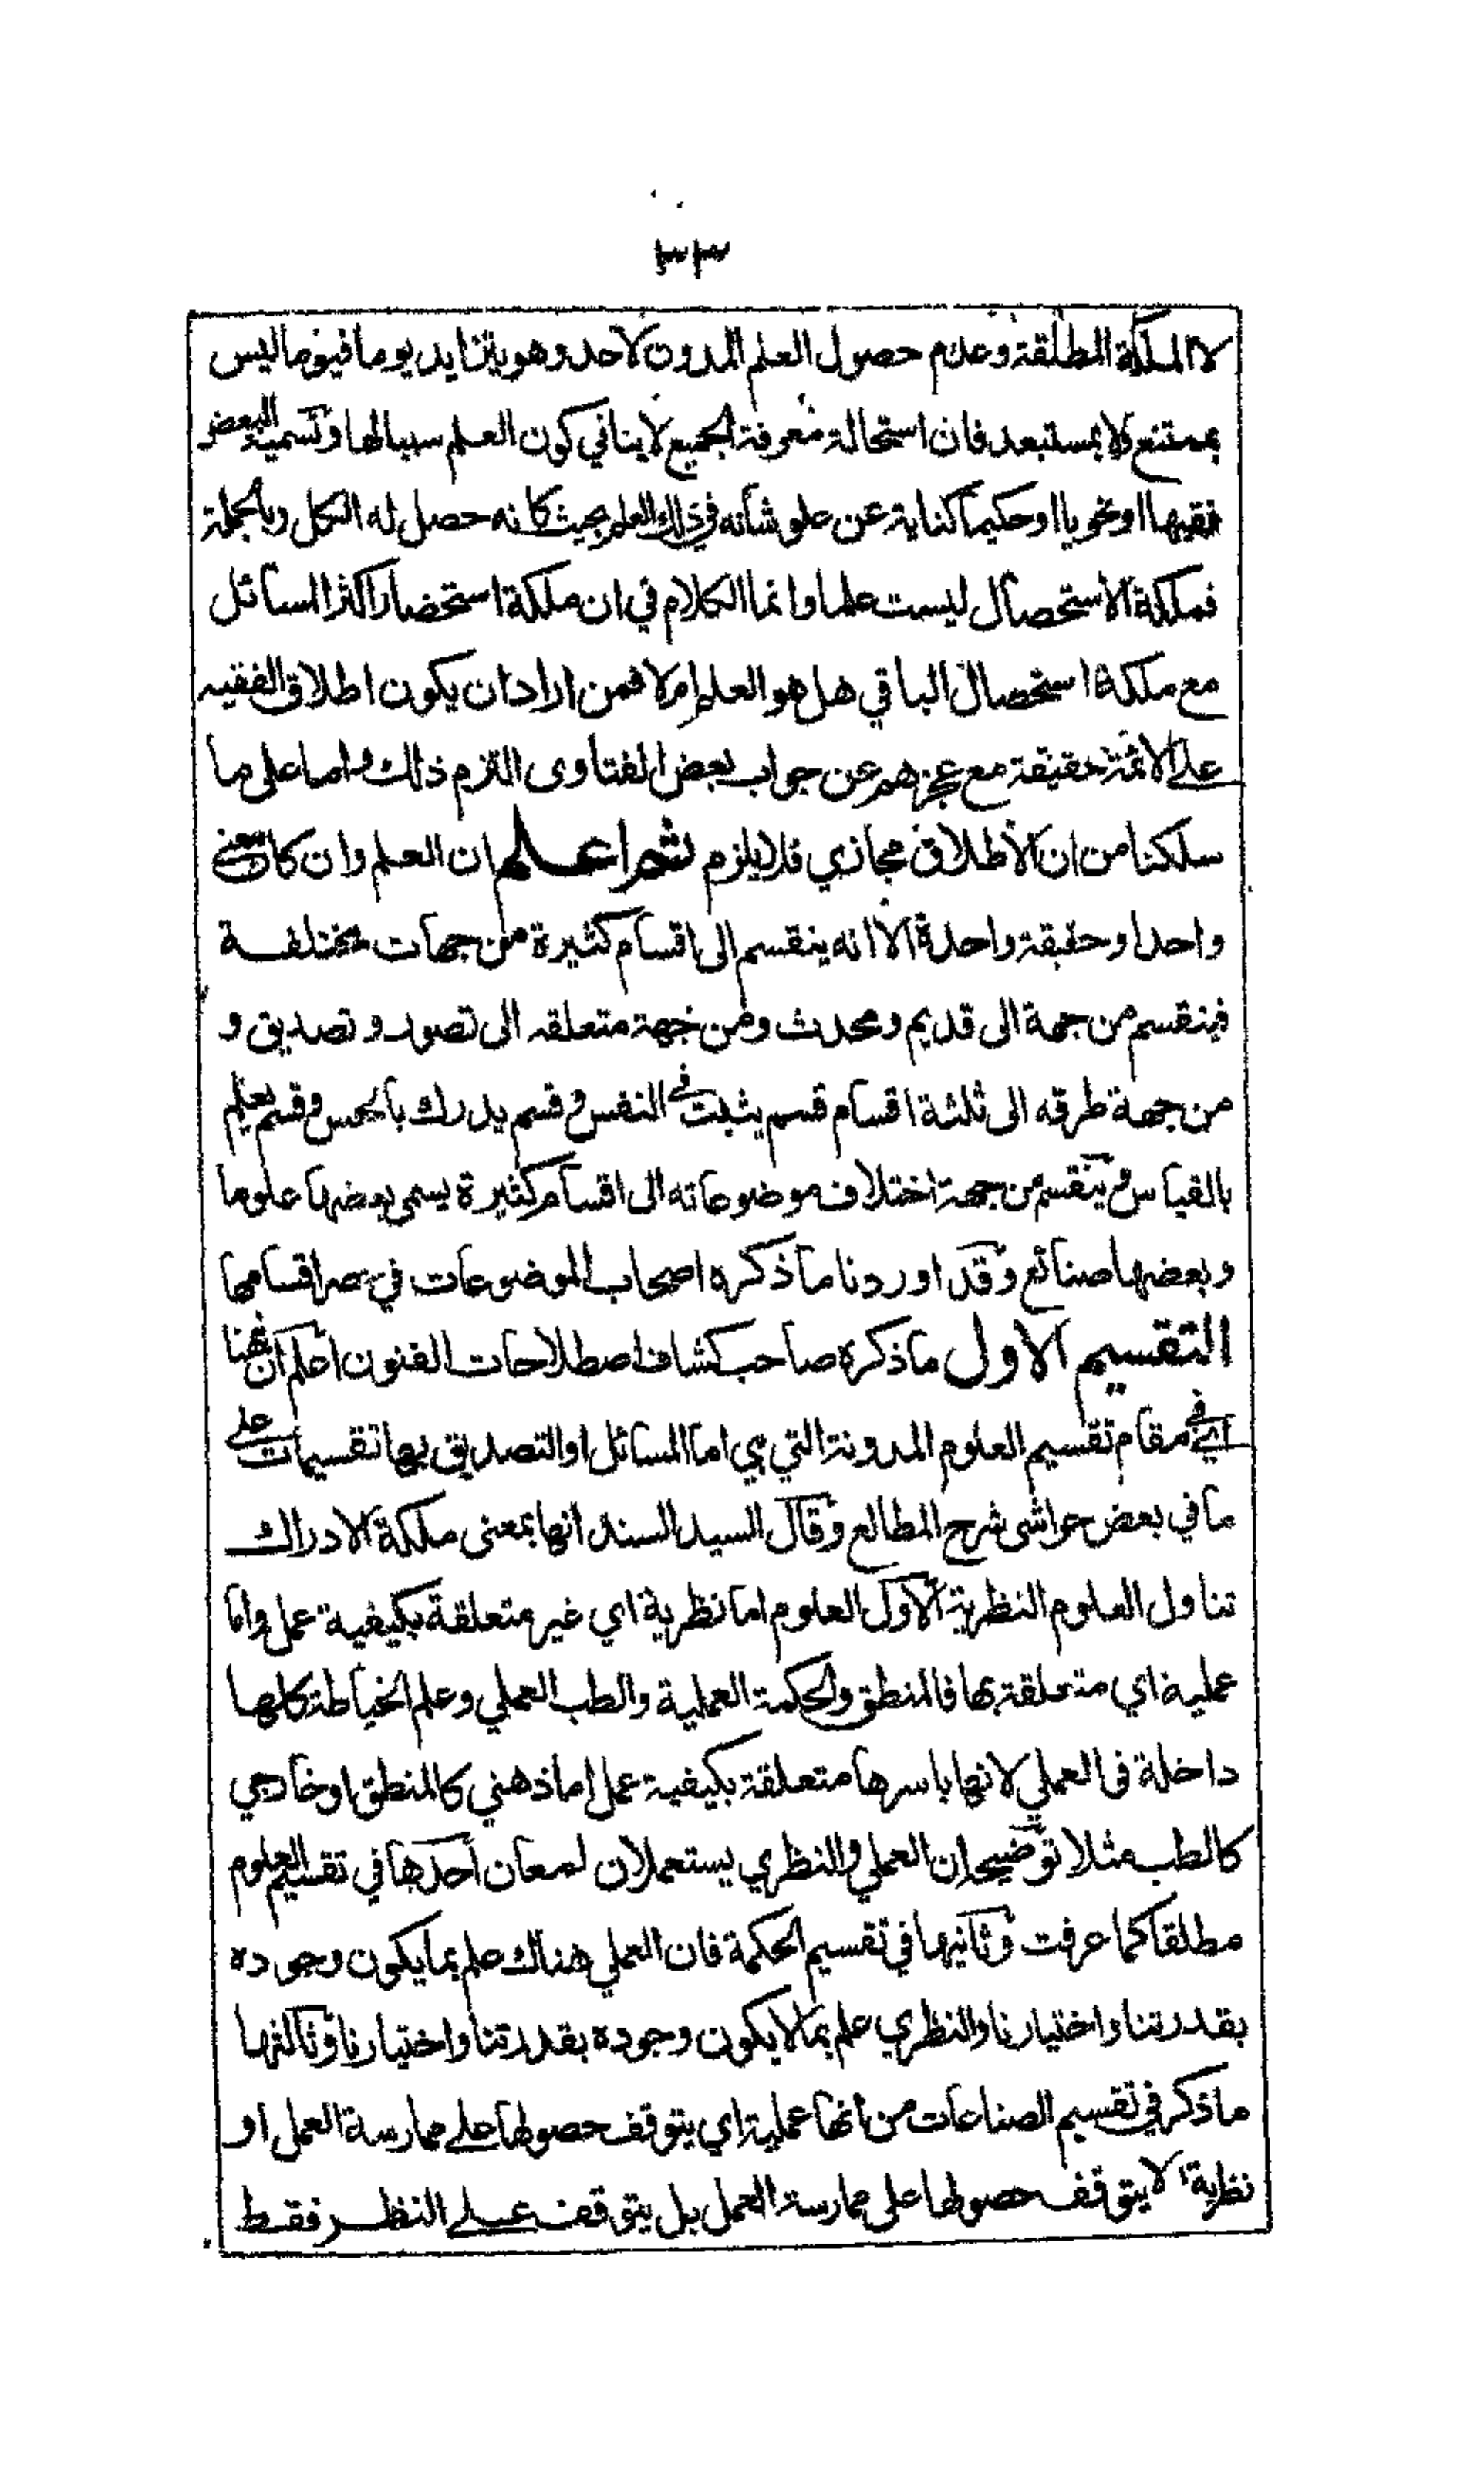 ٣٣
لا الملكة المطلقة وعدم حصول العلم المدون لاحد وهو يتزايد يوما فيوما ليس
بممتنع ولا بمستبعد فان استحالة معرفة الجميع لا ينافي كون العلم سببا لها وتسمية البعض
فقيها او نحويا او حكيما كناية عن علو شانه في ذلك العلم بحيث كانه حصل له الكل وبالجملة
فملكة الاستحصال ليست علما وانما الكلام في ان ملكة استحضار اكثر المسائل
مع ملكة استحصال الباقي هل هو العلم ام لا فمن اراد ان يكون اطلاق الفقيه
على الائمة حقيقة مع عجزهم عن جواب بعض الفتاوى التزم ذلك واما على ما
سلكنا من ان الاطلاق مجازي فلا يلزم ثم اعلم ان العلم وان كان معنى
واحدا وحقيقة واحدة الا انه ينقسم الى اقسام كثيرة من جهات مختلفة
فينقسم من جهة الى قديم ومحدث ومن جهة متعلقه الى تصور وتصديق و
من جهة طرقه الى ثلثة اقسام قسم يثبت في النفس وقسم يدرك بالحس وقسم يعلم
بالقياس وينقسم من جهة اختلاف موضوعاته الى اقسام كثيرة يسمى بعضها علوما
وبعضها صنائع وقد اوردنا ما ذكره اصحاب الموضوعات في حصر اقسامها
التقسيم الاول ما ذكره صاحب كشاف اصطلاحات الفنون اعلم ان ههنا
اي في مقام تقسيم العلوم المدونة التي هي اما المسائل او التصديق بها تقسيمات على
ما في بعض حواشي شرح المطالع وقال السيد السند انها بمعنى ملكة الادراك
تناول العلوم النظرية الاول العلوم اما نظرية اي غير متعلقة بكيفية عمل واما
عملية اي متعلقة بها فالمنطق والحكمة العملية والطب العملي وعلم الخياطة كلها
داخلة في العملي لانها باسرها متعلقة بكيفية عمل اما ذهني كالمنطق او خارجي
كالطب مثلا توضيحه ان العملي والنظري يستعملان لمعان احدها في تقسيم العلوم
مطلقا كما عرفت وثانيها في تقسيم الحكمة فان العملي هناك علم بما يكون وجوده
بقدرتنا واختيارنا والنظري علم بما لا يكون وجوده بقدرتنا واختيارنا وثالثها
ما ذكر في تقسيم الصناعات من انها عملية اي يتوقف حصولها على ممارسة العمل او
نظرية لا يتوقف حصولها على ممارسة العمل بل يتوقف على النظر فقط